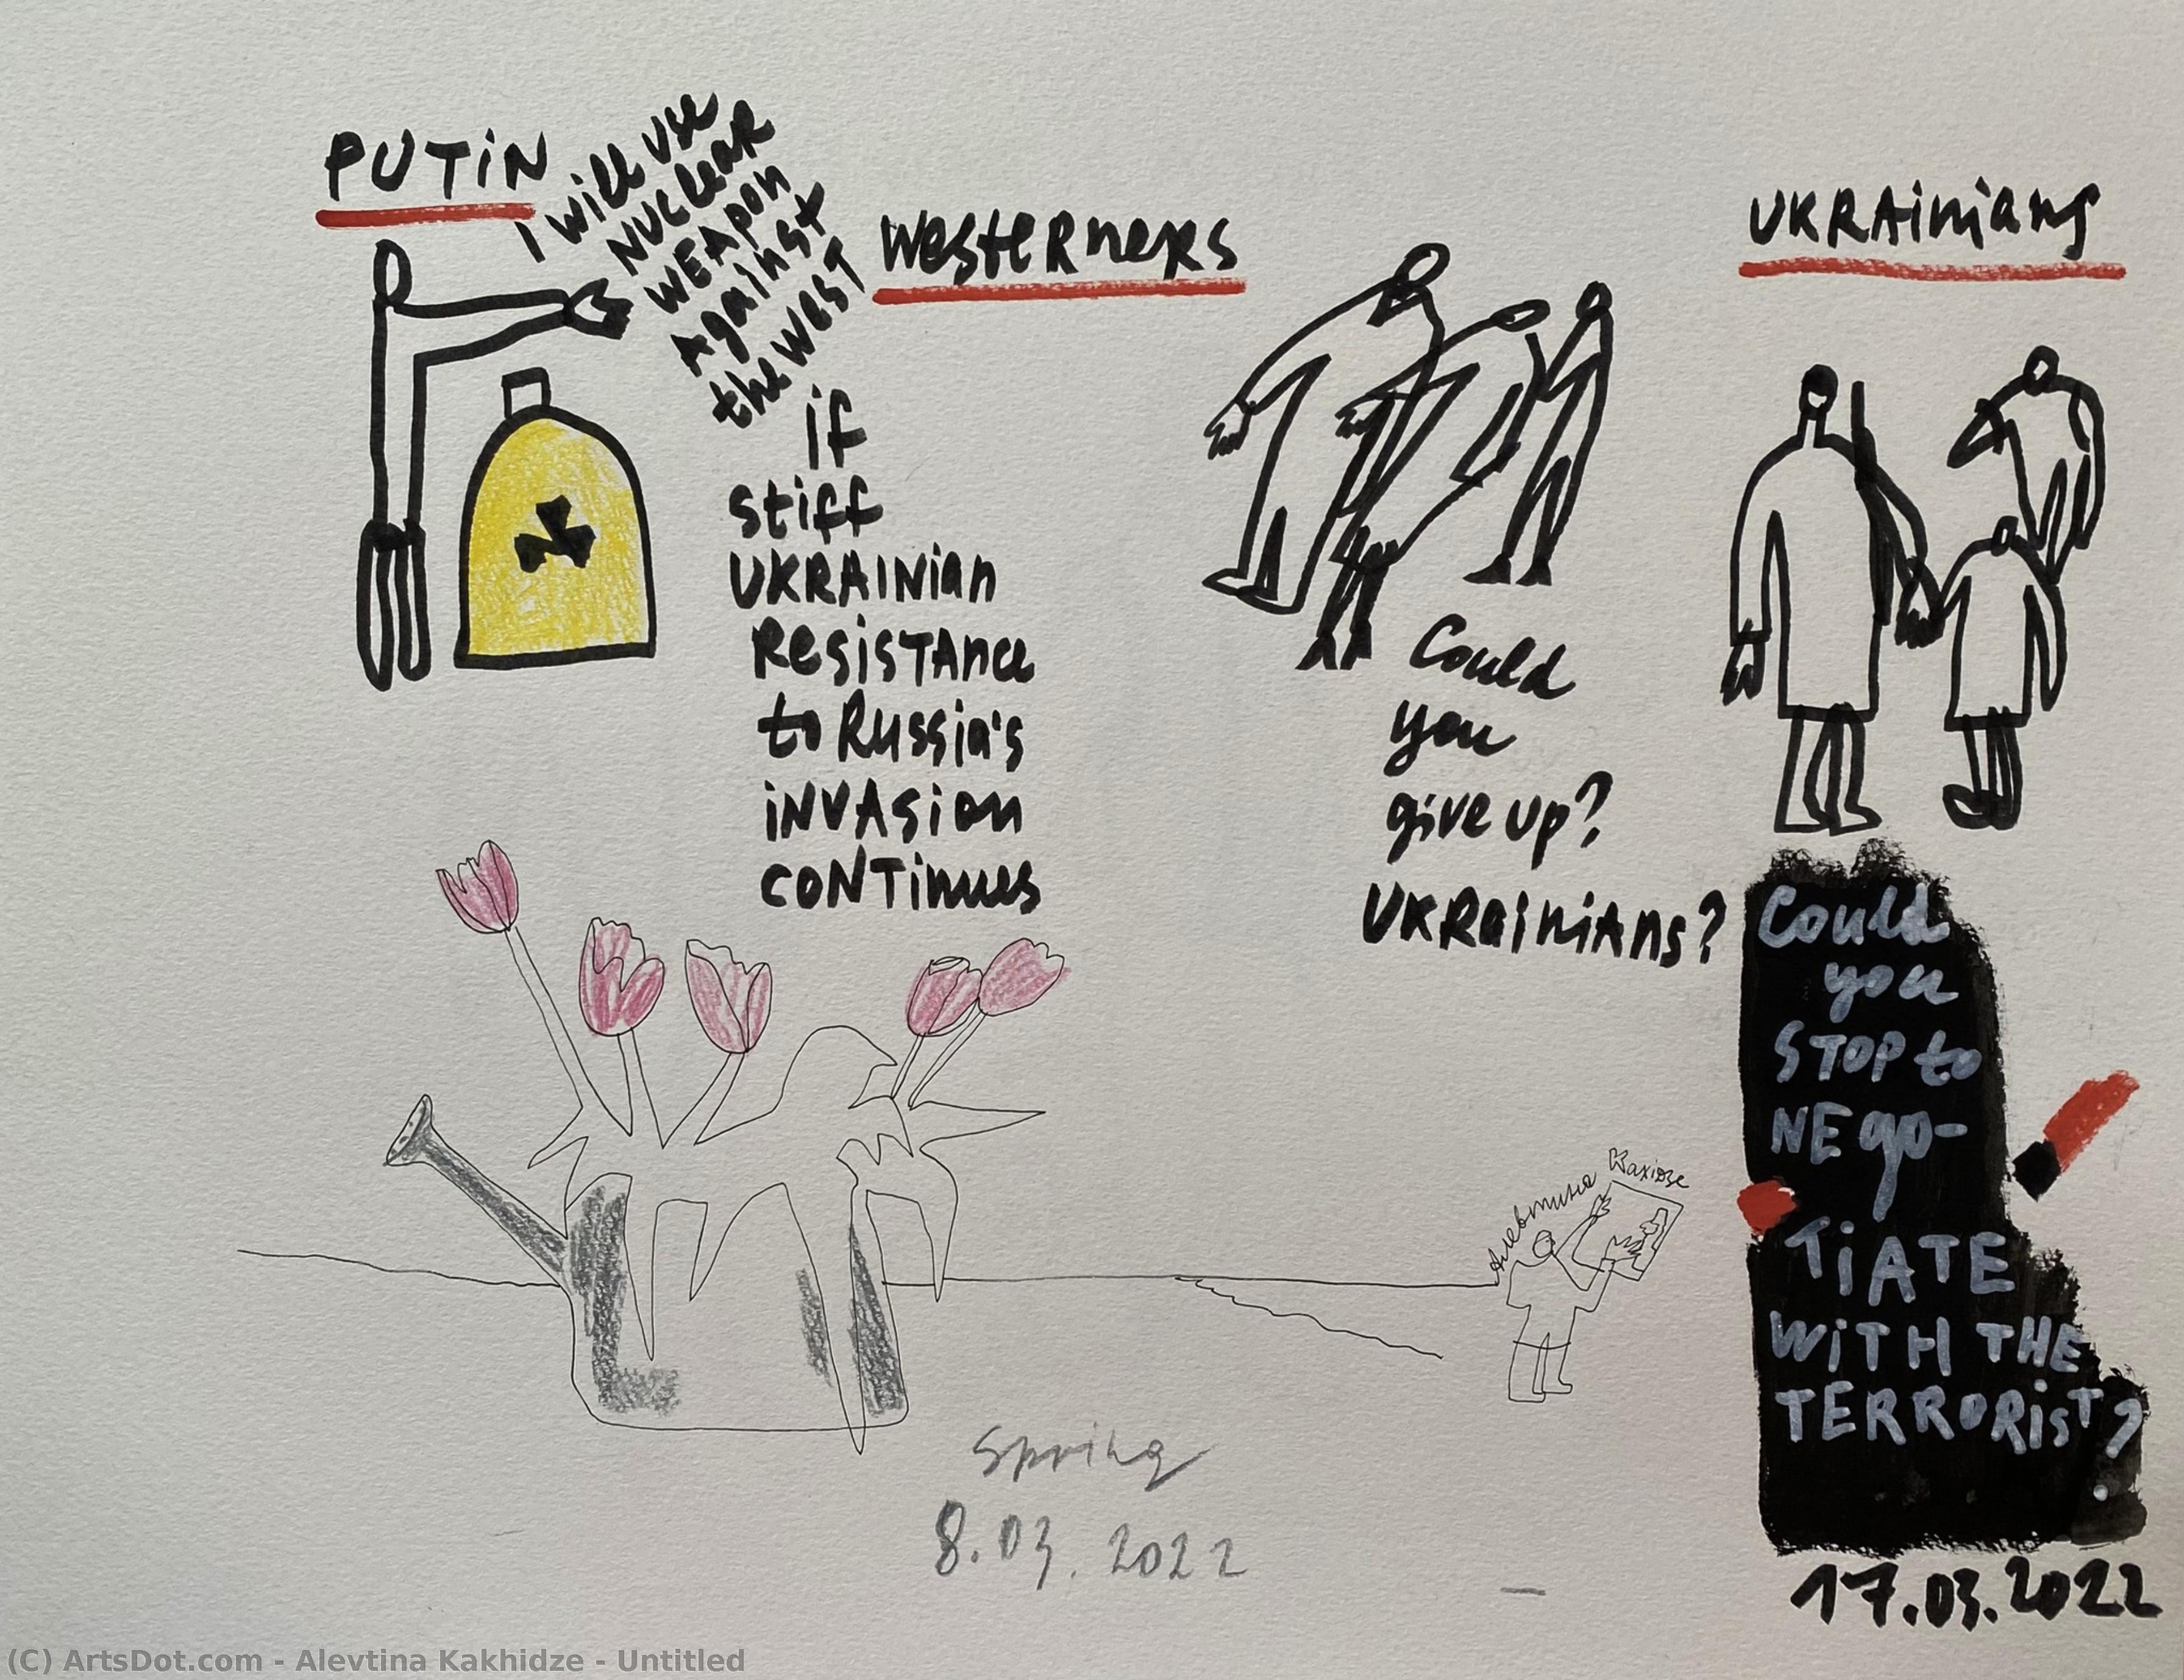 PUTiN
I will use
NUCLeaR
WEApon
Against
the WEST
if
stiff
UKRAINian
ResisTAnce
to Russia's
iNVAsion
coNTinues
WesteRneRs
Could
you
give up?
UKRainiAns?
UKRAinians
Could
you
STOP to
NEgo-
TiATE
WiTH THE
TERRORisT?
17.03.2022
Алевтина Кахідзе
Spring
8.03.2022
(C) ArtsDot.com - Alevtina Kakhidze - Untitled